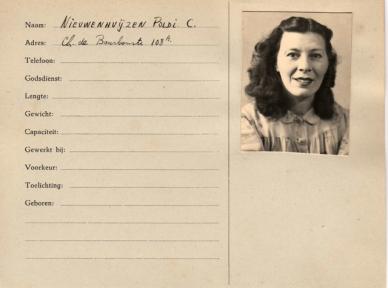 Naam: Nieuwenhuÿzen Poldi C.
Adres: Ch. de 103
Telefoon:
Godsdienst:
Lengte:
Gewicht:
Capaciteit:
Gewerkt bij:
Voorkeur:
Toelichting:
Geboren: